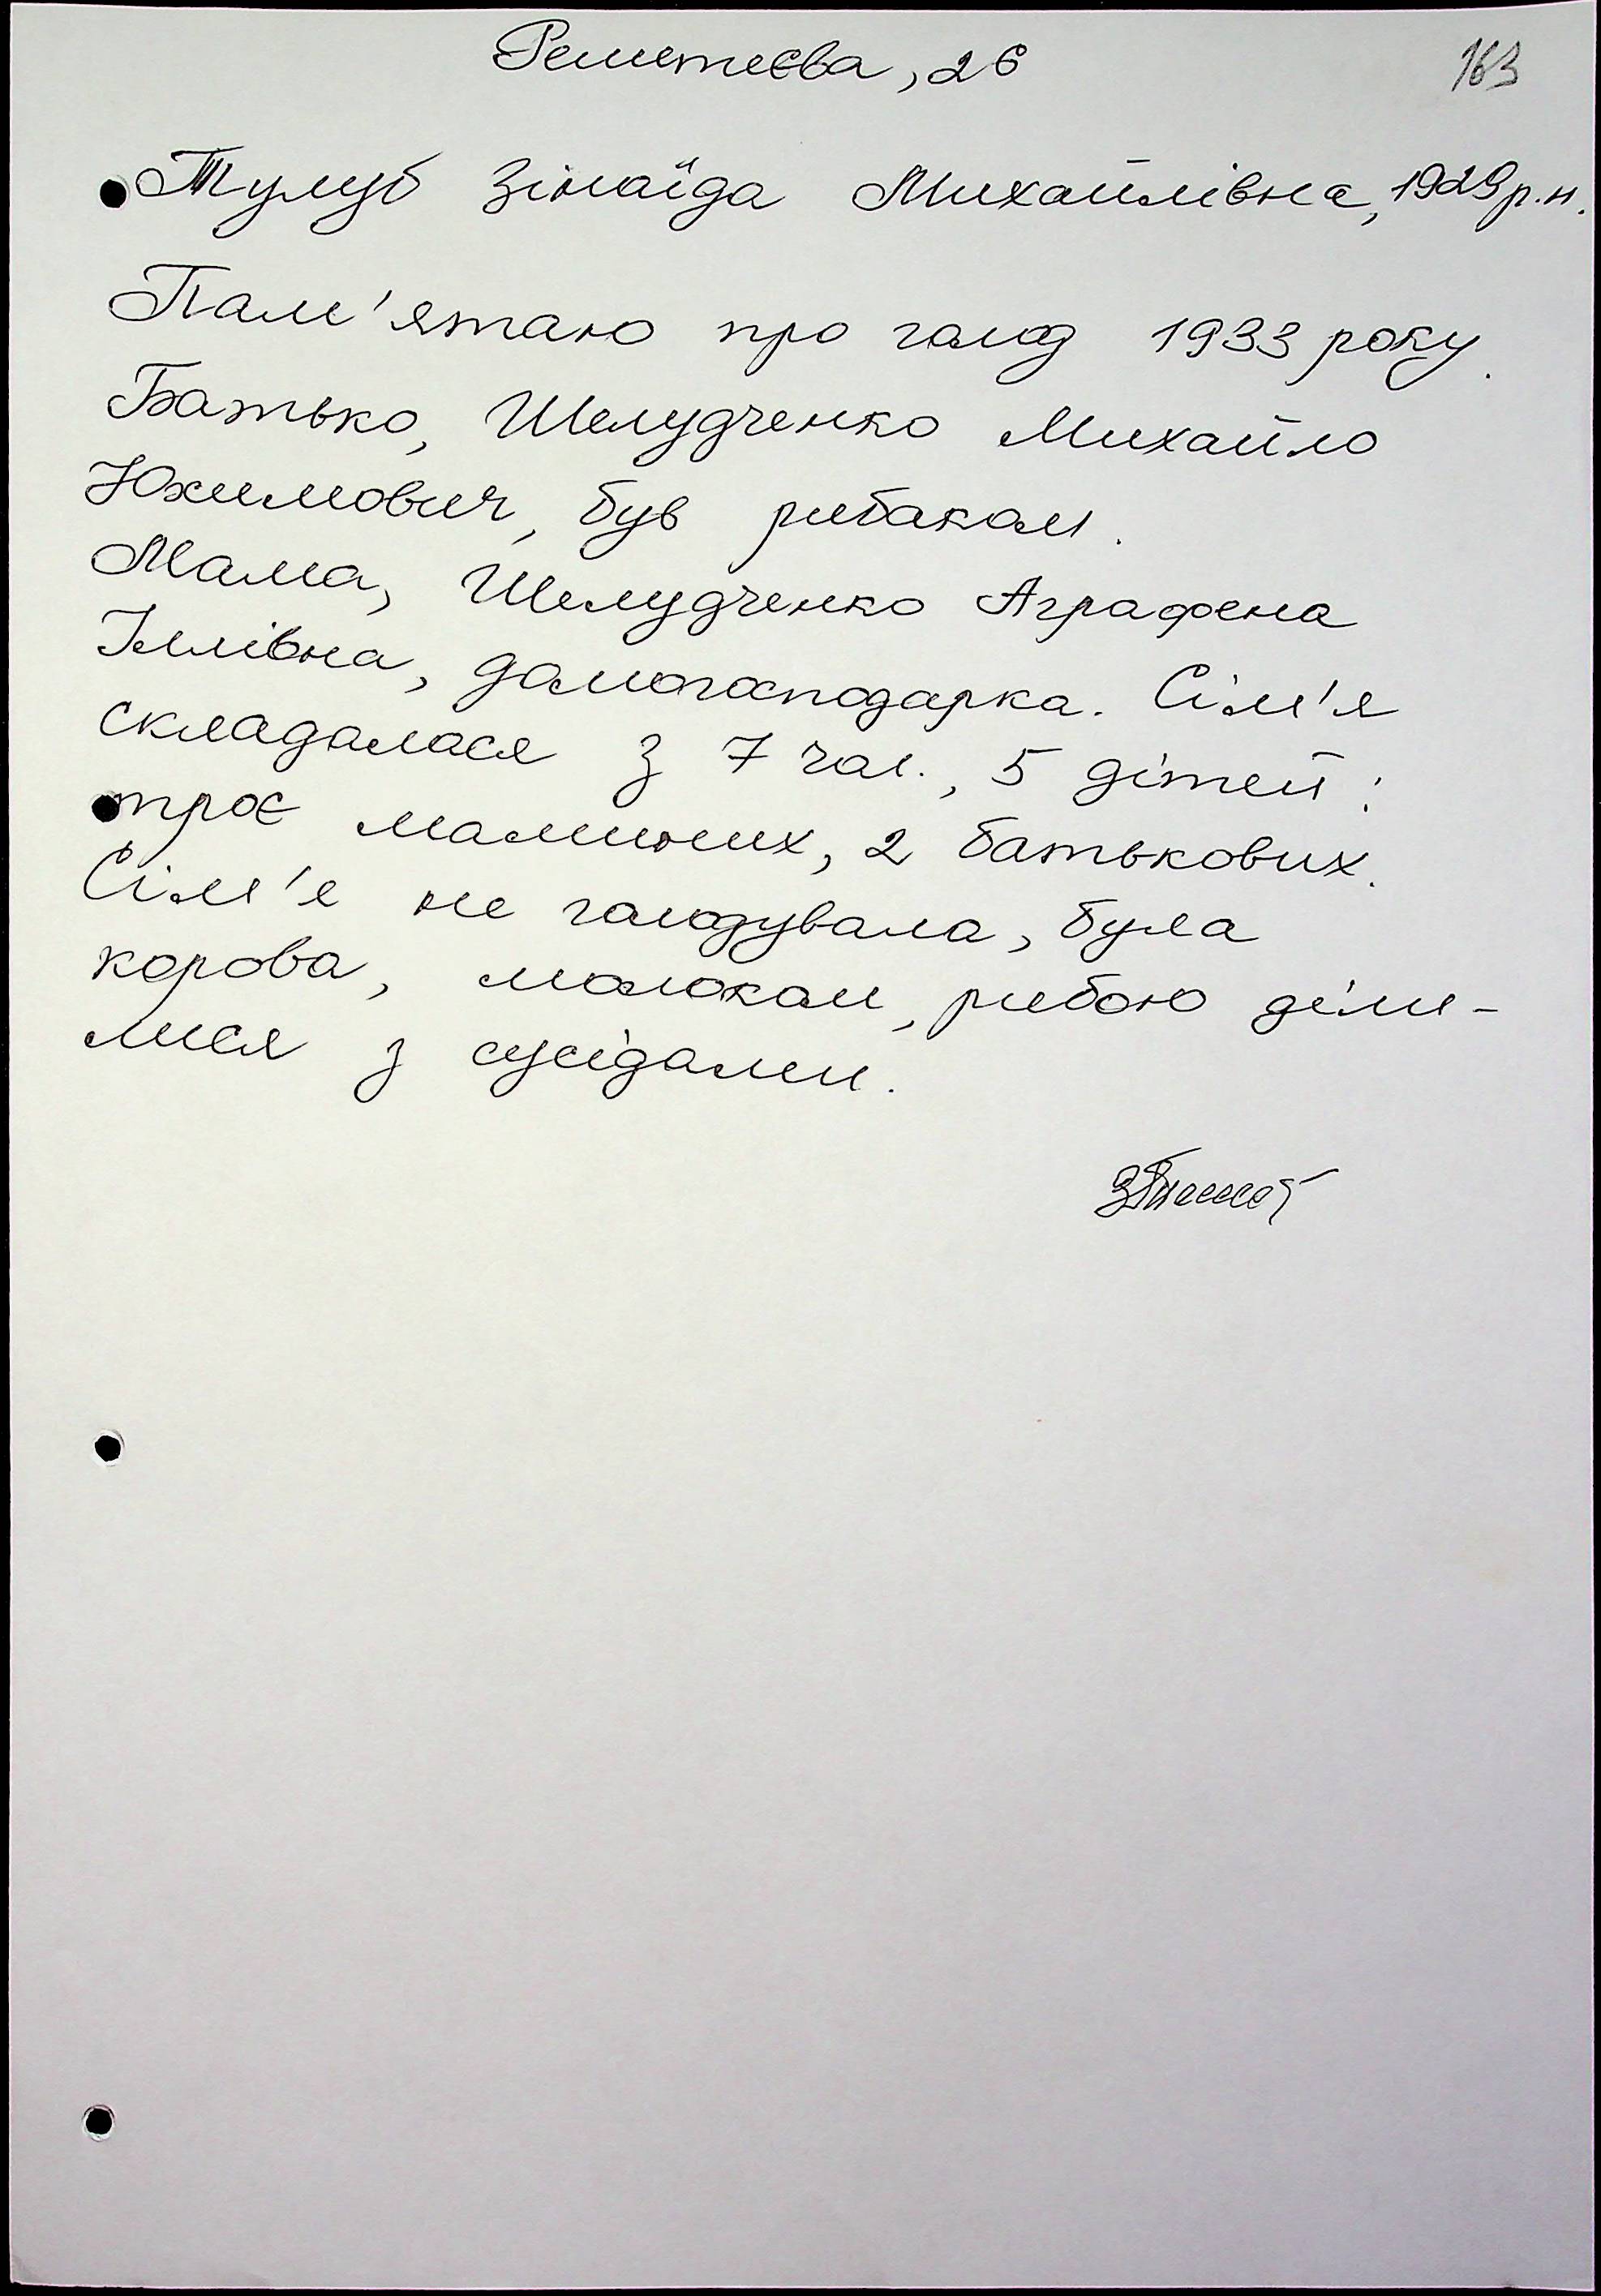 Решетєєва, 26
163
Тулуб Зінаїда Михайлівна, 1929 р.н.
Пам'ятаю про голод 1933 року.
Батько, Шелудченко Михайло
Юхимович, був рибаком.
Мама, Шелудченко Аграфена
Іллівна, домогосподарка. Сім'я
складалася з 7 чол., 5 дітей:
троє маминих, 2 батькових.
Сім'я не голодувала, була
корова, молоком, рибою діли-
лися з сусідами.